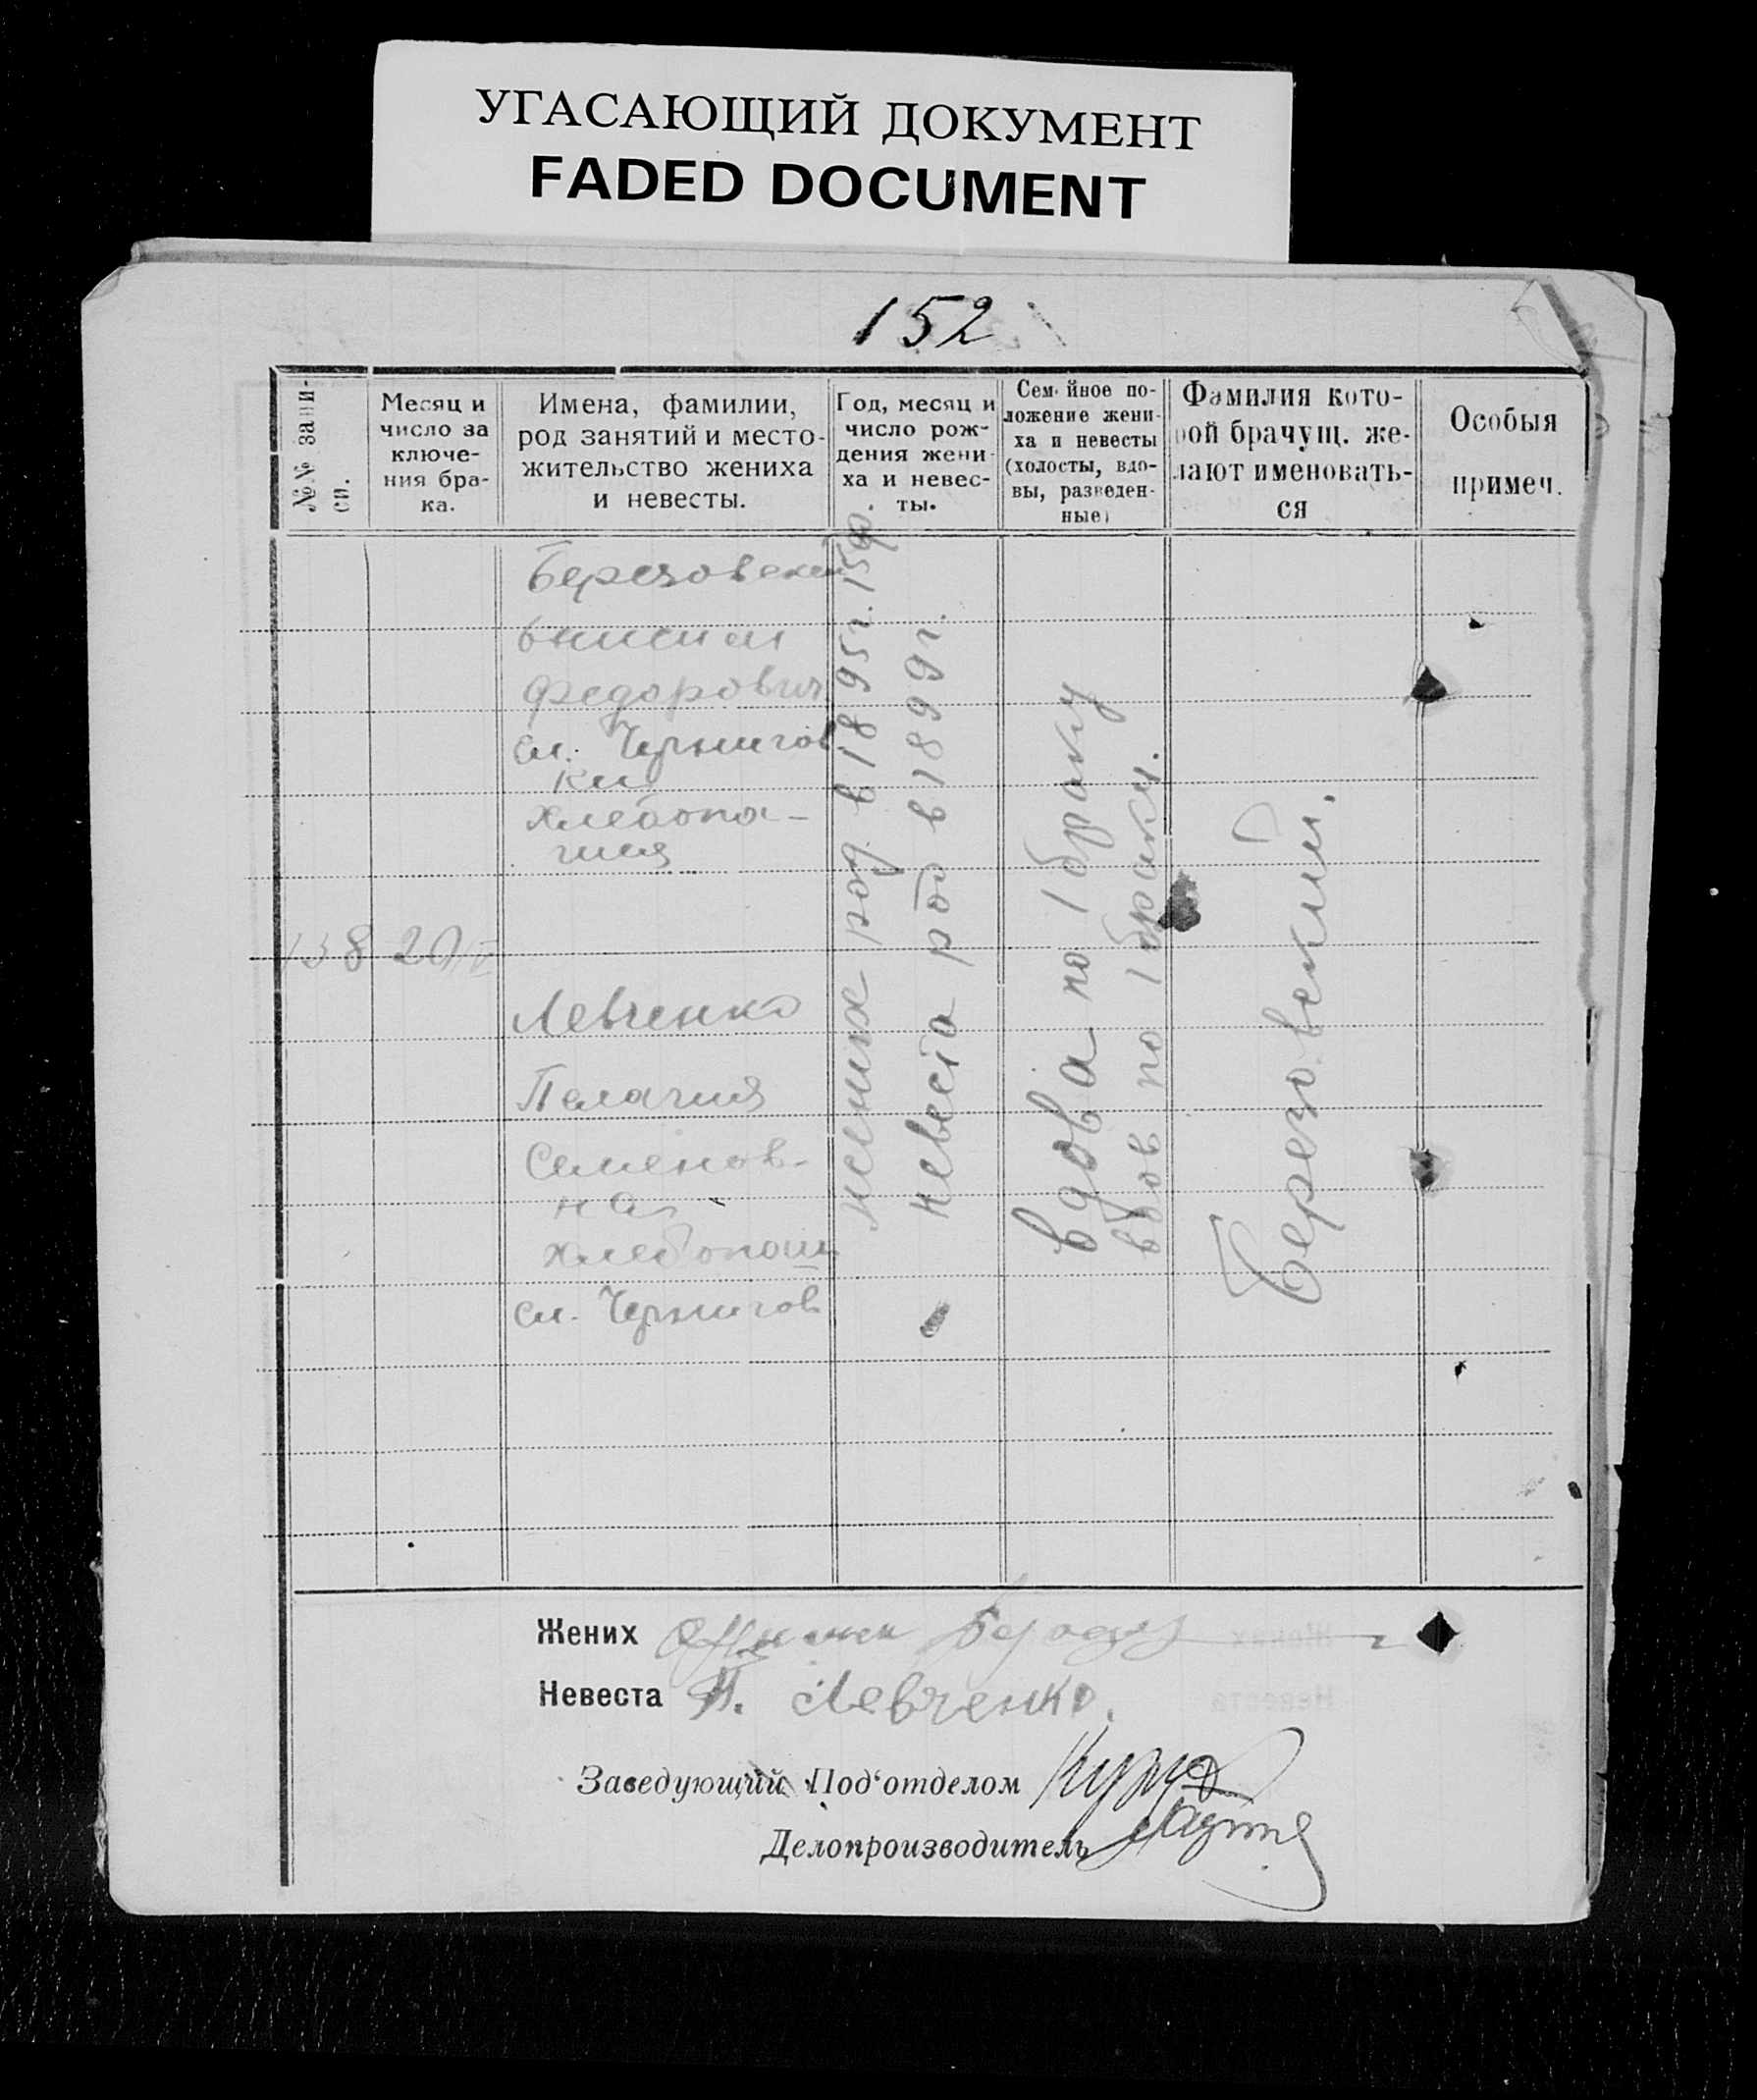 УГАСАЮЩИЙ ДОКУМЕНТ
FADED DOCUMENT
152
№№ запи-
си.
Месяц и
число за
ключе-
ния бра-
ка.
Имена, фамилии,
род занятий и место-
жительство жениха
и невесты.
Год, месяц и
число рож-
дения жени-
ха и невес-
ты.
Сем йное по-
ложение жени-
ха и невесты
(холосты, вдо-
вы, разведен-
ные)
Фамилия кото-
рой брачущ. же-
лают именовать-
ся
Особыя
примеч.
138 20
Березовский
Федорович
сл. Чернигов
ки
хлебопа-
шец
Левченко
Пелагия
Семенов-
на
хлебопаш
сл. Чернигов
жених род. в 1895 г. 15 ф.
невеста род в 1899 г.
вдова по 1 браку
вдов по 1 браку.
Березовский.
Жених
Невеста П. Левченко.
Заведующий Под'отделом
Делопроизводитель